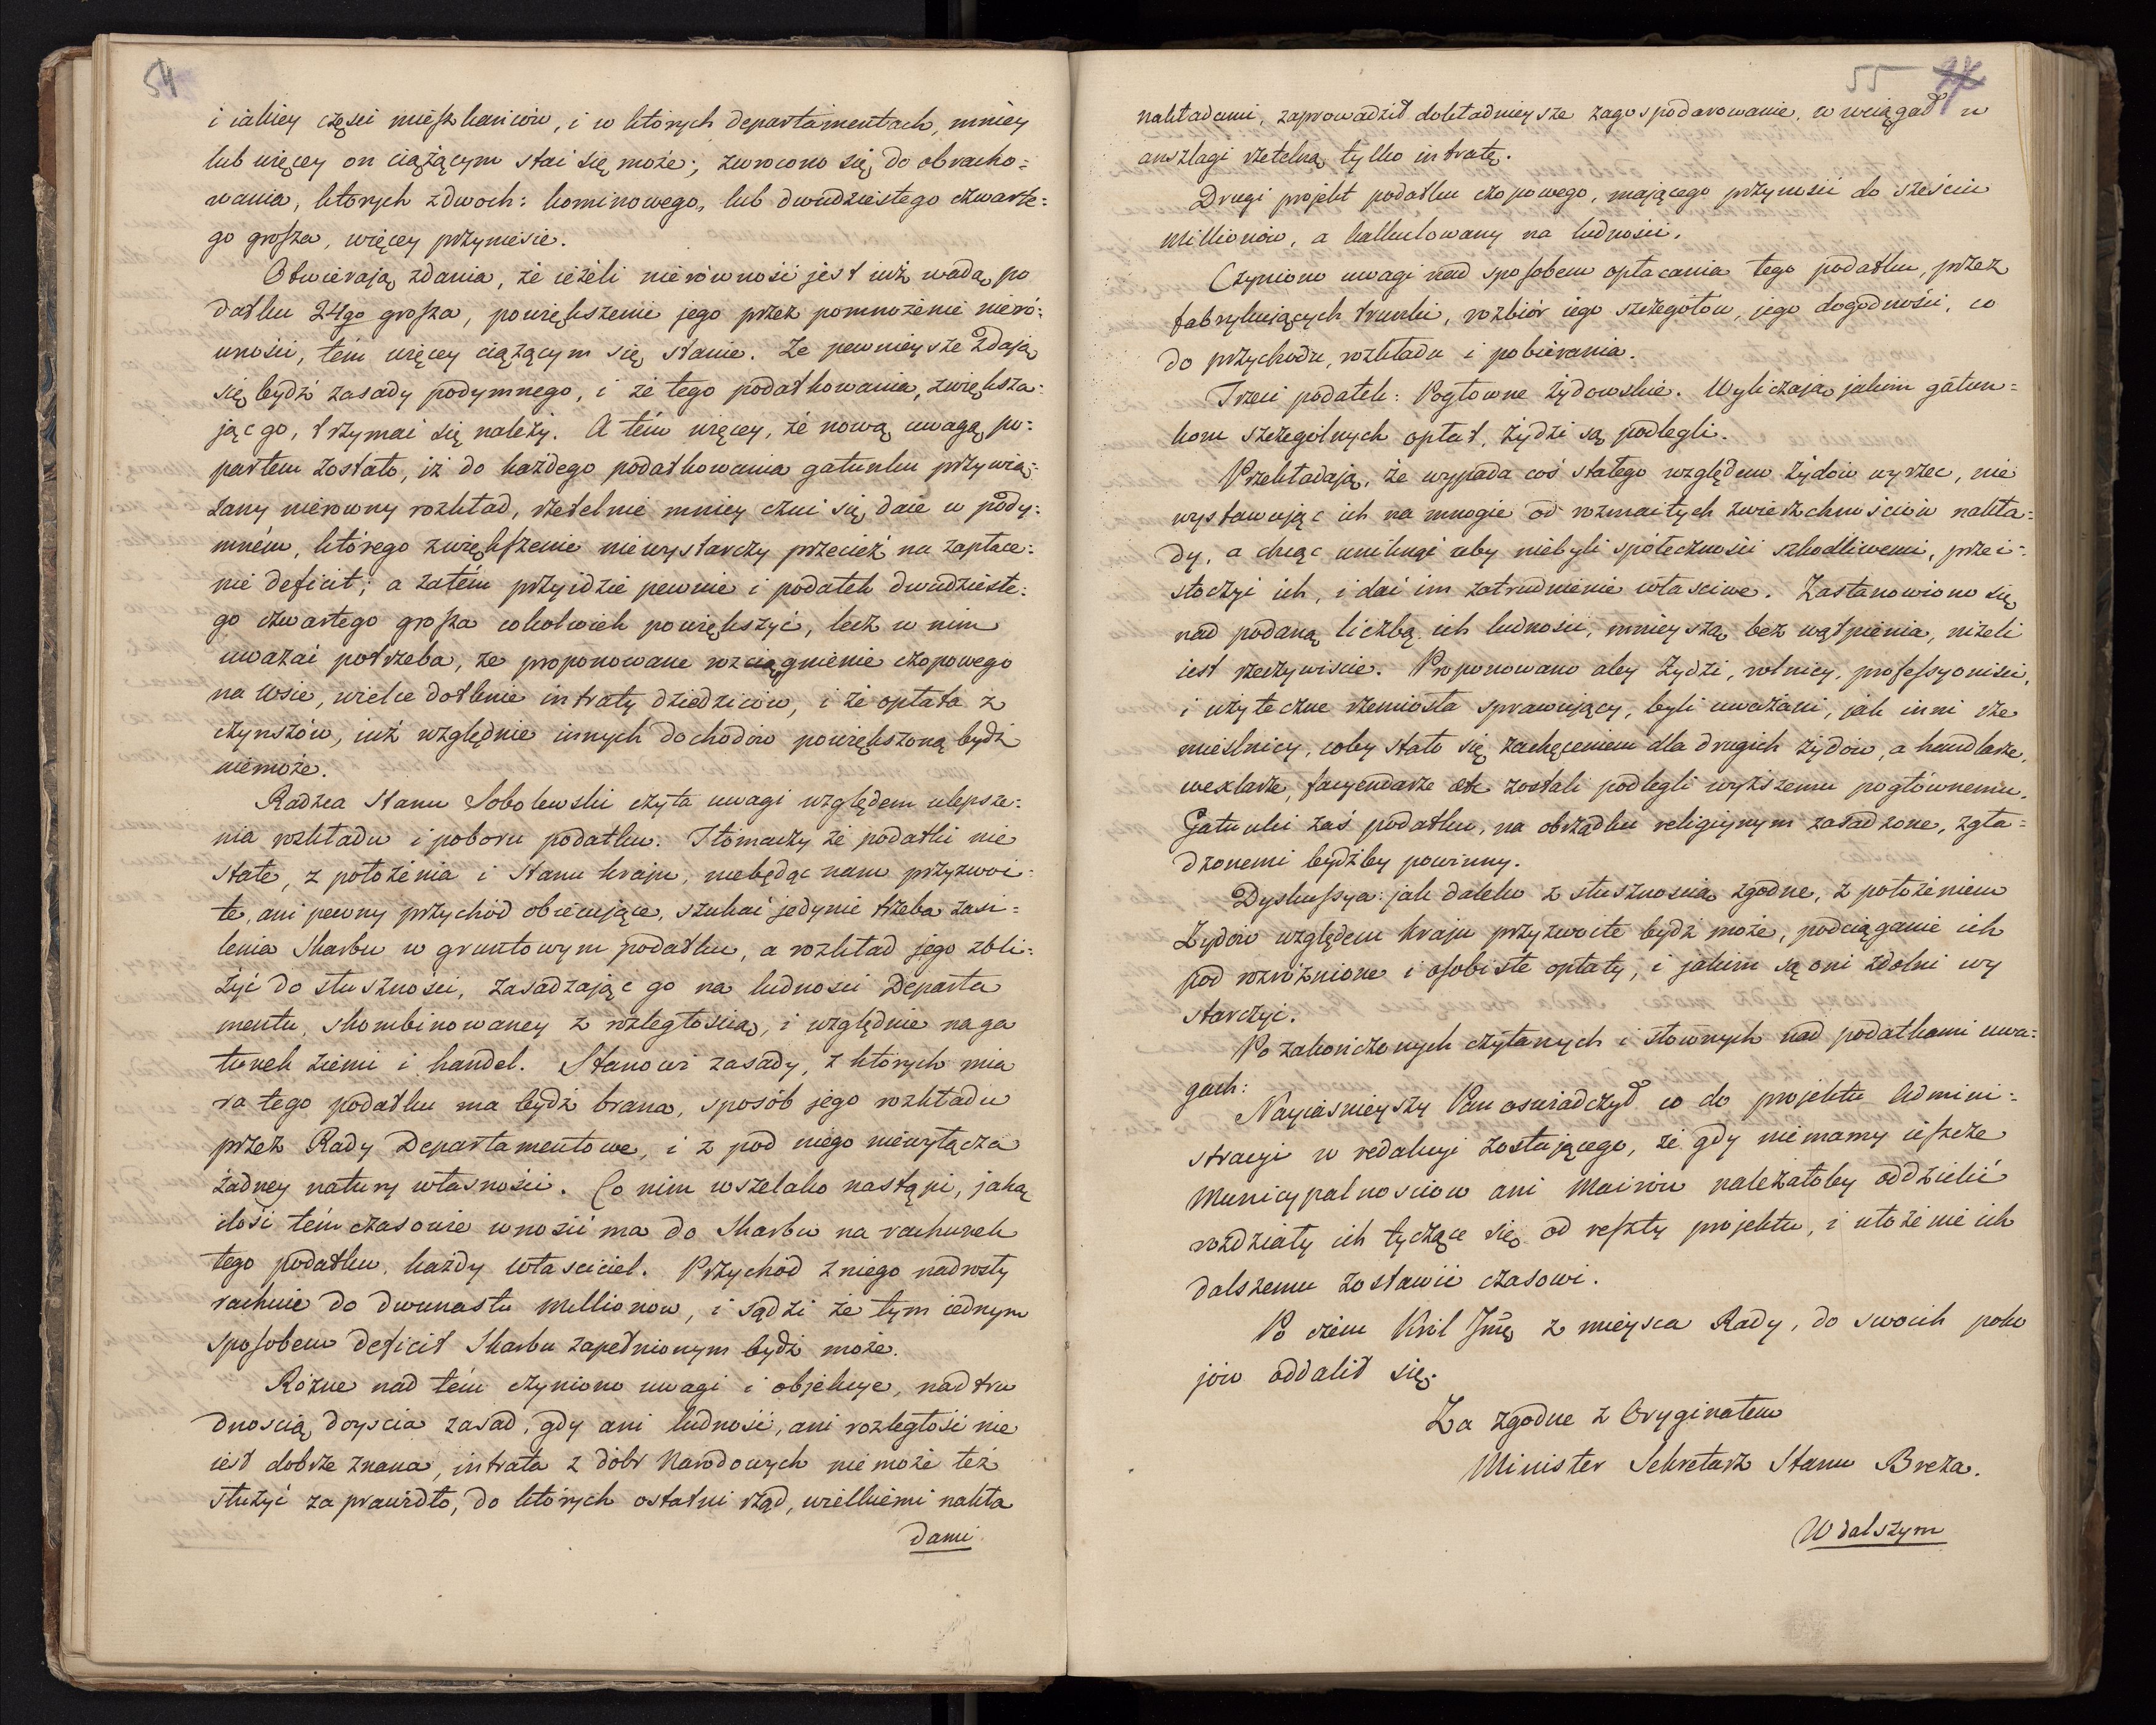 54
i iakiey części mieszkańców, i w których departamentach, mniey
lub więcey on ciążącym stać się może; zwrocono się do obracho=
wania, których z dwoch: kominowego, lub dwudziestego czwarte=
go grosza, więcey przyniesie.
Otwierają zdania, że ieżeli nierówność jest iuż wadą po
datku 24go grosza, powiększenie jego przez pomnożenie nieró=
wności, tém więcey ciążącym się stanie. Że pewnieysze zdają
się bydź zasady podymnego, i że tego podatkowania, zwiększa=
jąc go, trzymać się należy. A tém więcey, że nową uwagą po=
partem zostało, iż do każdego podatkowania gatunku przywią=
zany nierowny rozkład, rzetelnie mniey czuć się daie w pody=
mném, którego zwiększenie niewystarczy przecież na zapłace=
nie deficit; a zatém przyidzie pewnie i podatek dwudzieste=
go czwartego grosza cokolwiek powiększyć, lecz w nim
uważać potrzeba, że proponowane rozciągnienie czopowego
na wsie, wielce dotknie intraty dziedziców, i że opłata z
czynszów, iuż względnie innych dochodów powiększoną bydź
niemoże.
Radzca Stanu Sobolewski czyta uwagi względem ulepsze=
nia rozkładu i poboru podatku. Tłómaczy że podatki nie
stałe, z położenia i stanu kraju, niebędąc nam przyzwoi=
te, ani pewny przychód obiecujące, szukać jedynie trzeba zasi=
lenia Skarbu w gruntowym podatku, a rozkład jego zbli=
żyć do słuszności, zasadzając go na ludności Departa
mentu, skombinowaney z rozległością, i względnie na ga
tunek ziemi i handel. Stanowi zasady, z których mia
ra tego podatku ma bydź brana, sposób jego rozkładu
przez Rady Departamentowe, i z pod niego niewyłącza
żadney natury własności. Co nim wszelako nastąpi, jaką
ilość tém czasowie wnosić ma do Skarbu na rachunek
tego podatku, każdy właściciel. Przychód z niego nadrosty
rachuie do dwunastu millionow, i sądzi że tym iednym
sposobem deficit Skarbu zapełnionym bydź może.
Różne nad tém czyniono uwagi i objekcye, nad tru
dnością doyścia zasad, gdy ani ludność, ani rozległość nie
iest dobrze znana, intrata z dóbr Narodowych niemoże też
służyć za prawidło, do których ostatni rząd, wielkiemi nakła
dami
55
nakładami, zaprowadził dokładnieysze zagospodarowanie, a wciągał w
anszlagi rzetelną tylko intratę.
Drugi projekt podatku czopowego, mającego przynosić do sześciu
millionów, a kalkulowany na ludności.
Czyniono uwagi nad sposobem opłacania tego podatku, przez
fabrykuiących trunki, rozbiór iego szczegółów, jego dogodności, co
do przychodu, rozkładu i pobierania.
Trzeci podatek: Pogłowne żydowskie. Wyliczają jakim gatun=
kom szczególnych opłat, żydzi są podlegli.
Przekładają, że wypada coś stałego względem żydów wyrzec, nie
wystawując ich na mnogie od rozmaitych zwierzchnościów nakła=
dy, a chcąc uniknąć aby niebyli społeczności szkodliwemi, przei=
stoczyć ich, i dać im zatrudnienie właściwe. Zastanowiono się
nad podaną liczbą ich ludności, mnieyszą bez wątpienia, niżeli
iest rzeczywiście. Proponowano aby żydzi, rolnicy, professyoniści,
i użyteczne rzemiosła sprawujący, byli uważani, jak inni rze
mieślnicy, coby stało się zachęceniem dla drugich żydów, a handlarze,
wexlarze, facyendarze etc zostali podlegli wyższemu pogłównemu.
Gatunki zaś podatku, na obrządku religijnym zasadzone, zgła=
dzonemi bydźby powinny.
Dyskussya: jak daleko z słusznością zgodne, z położeniem
Żydów względem kraju przyzwoite bydź może, podciąganie ich
pod rozróżnione i osobiste opłaty, i jakim są oni zdolni wy
starczyć.
Po zakończonych czytanych i słownych nad podatkami uwa=
gach:
Nayiaśnieyszy Pan oświadczył co do projektu Admini=
stracyi w redakcyi zostającego, że gdy niemamy ieszcze
Municypalnościow ani Mairów należałoby oddzielić
rozdziały ich tyczące się od reszty projektu, i ułożenie ich
dalszemu zostawić czasowi.
Po czém Król Jmć z mieysca Rady, do swoich poko
jów oddalił się.
Za zgodne z Oryginałem
Minister Sekretarz Stanu Breza.
W dalszym